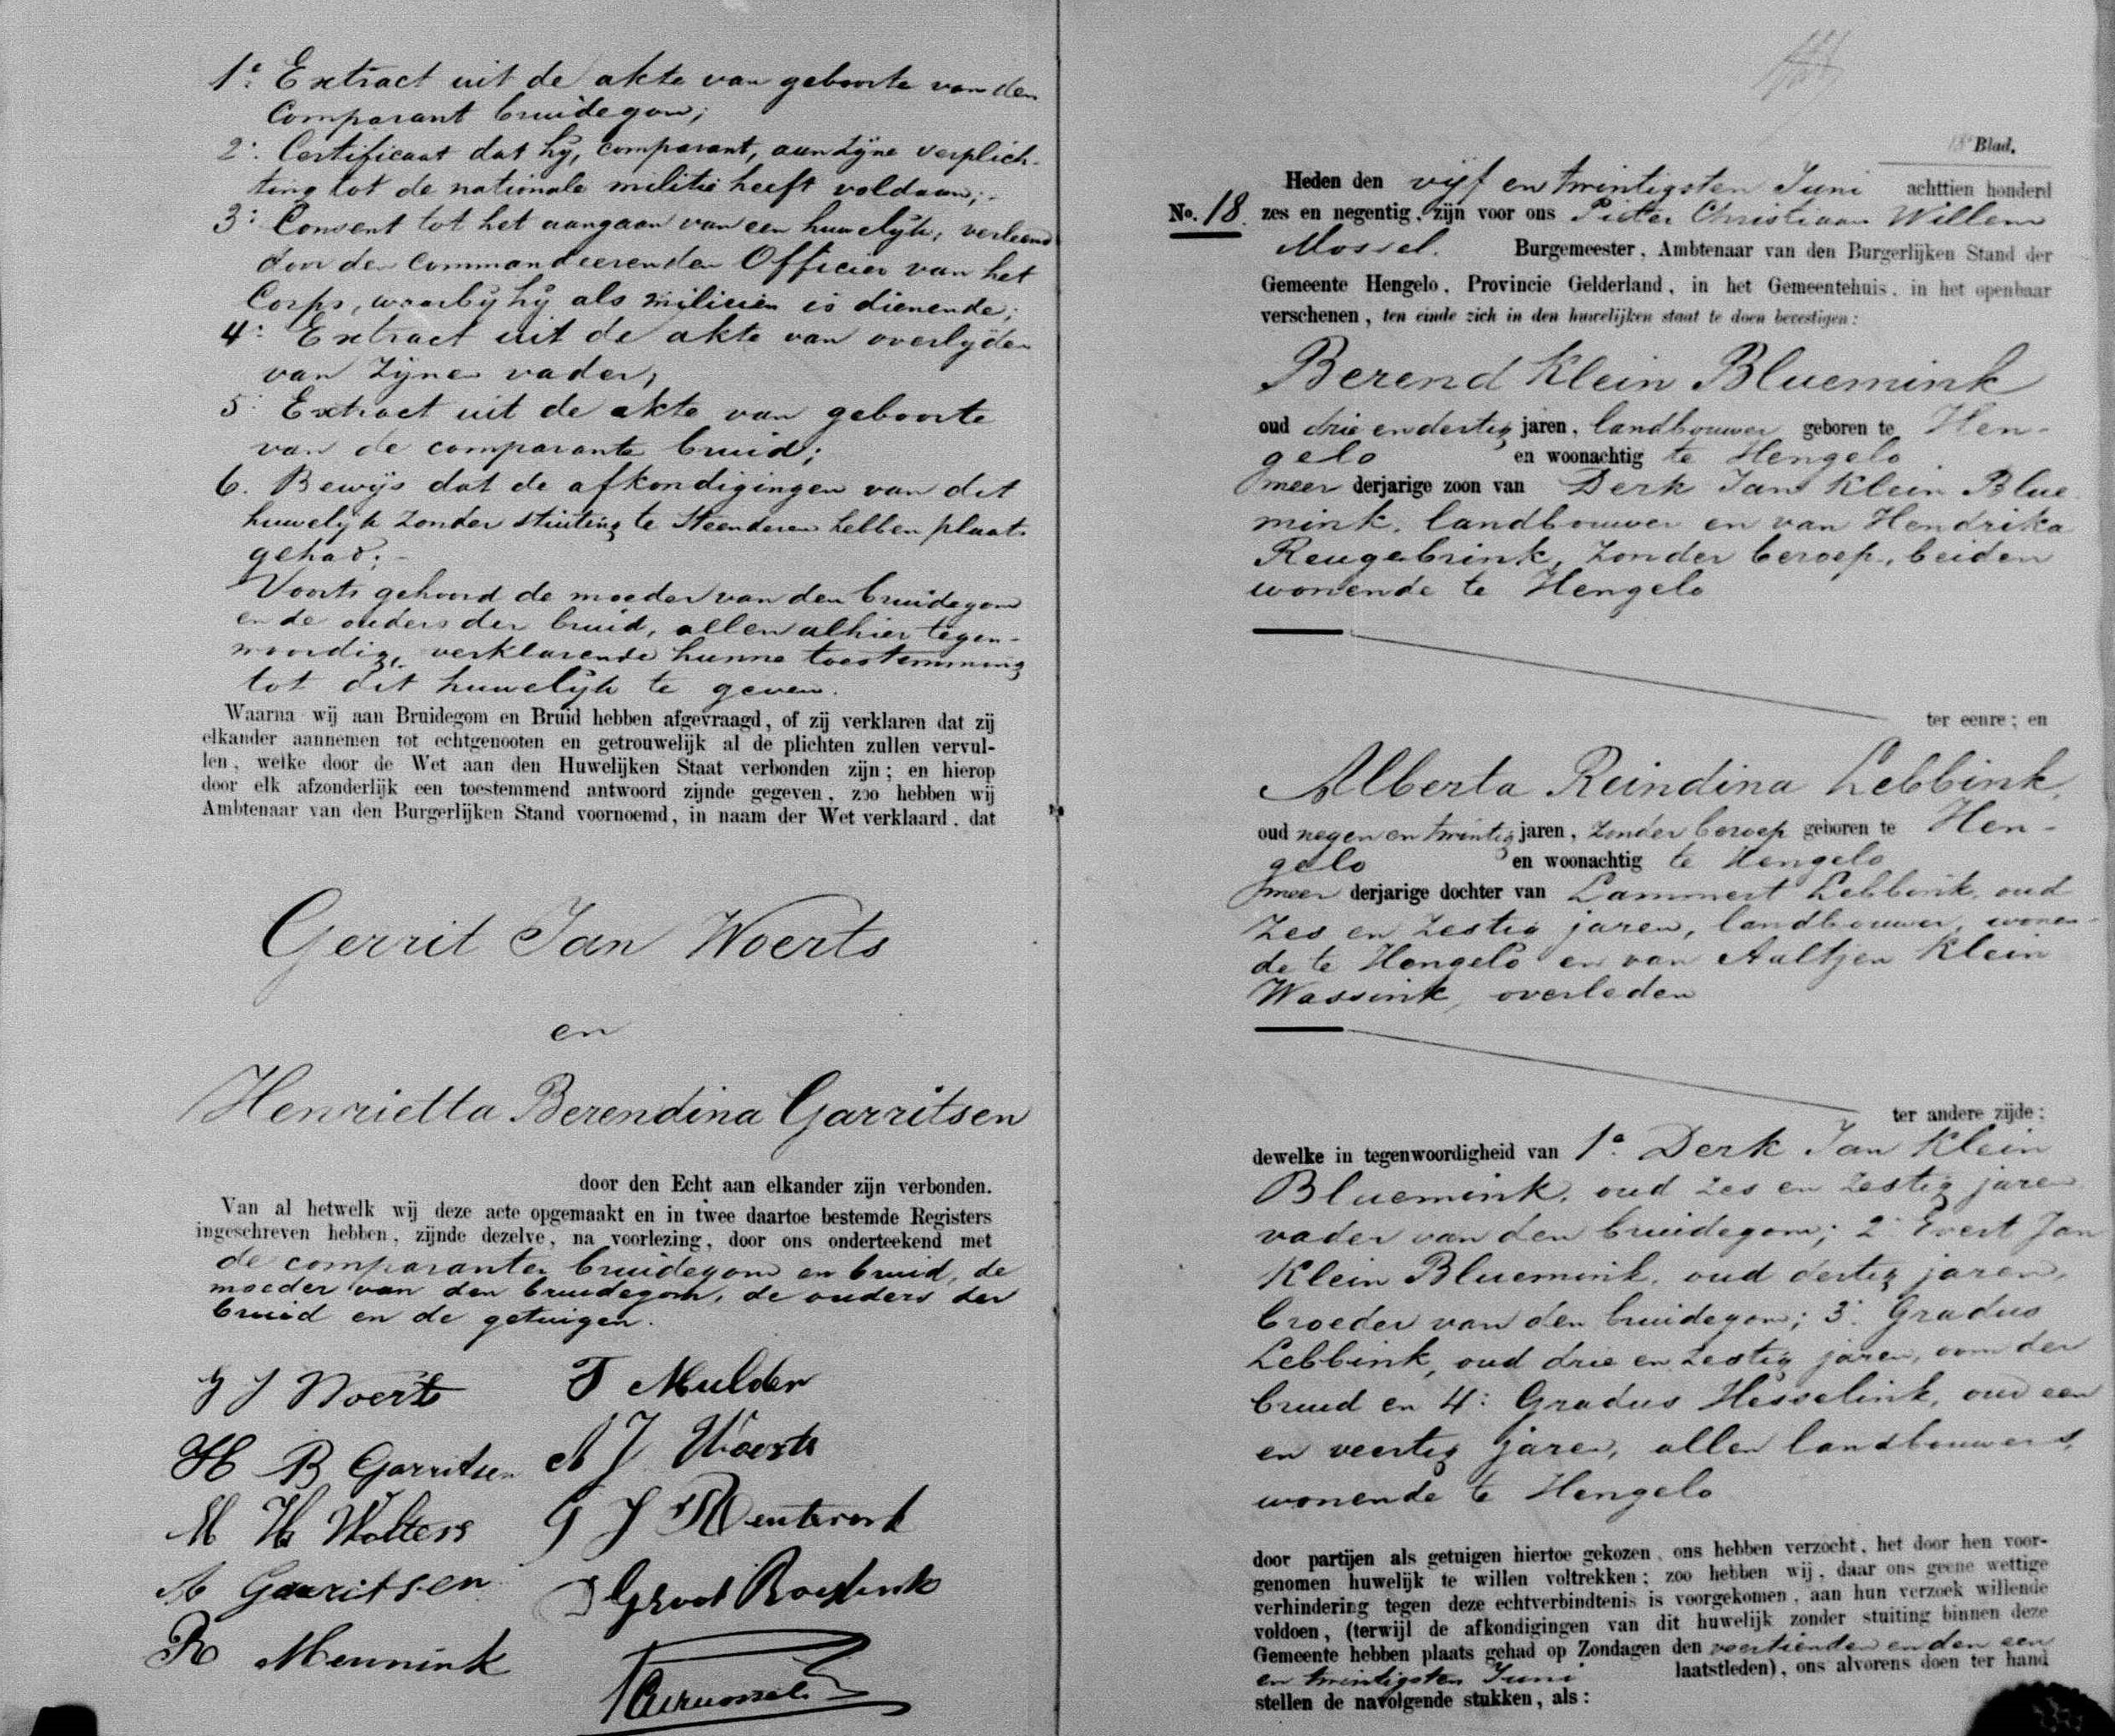 1e. Extract uit de akte van geboorte van den
Comparant bruidegom;
2e. Certificaat dat hij, comparant, aan zijne verplich-
ting tot de nationale militie heeft voldaan;
3e. Consent tot het aangaan van een huwelijk, verleend
door den Commandeerenden Officier van het
Corps, waarbij hij als milicien is dienende;
4e. Extract uit de akte van overlijden
van zijnen vader;
5e. Extract uit de akte van geboorte
van de comparante bruid;
6. Bewijs dat de afkondigingen van dit
huwelijk zonder stuiting te Steenderen hebben plaats
gehad;
Voorts gehoord de moeder van den bruidegom
en de ouders der bruid, allen alhier tegen-
woordig, verklarende hunne toestemming
tot dit huwelijk te geven.
Waarna wij aan Bruidegom en Bruid hebben afgevraagd, of zij verklaren dat zij
elkander aannemen tot echtgenooten en getrouwelijk al de plichten zullen vervul-
len, welke door de Wet aan den Huwelijken Staat verbonden zijn; en hierop
door elk afzonderlijk een toestemmend antwoord zijnde gegeven, zoo hebben wij
Ambtenaar van den Burgerlijken Stand voornoemd, in naam der Wet verklaard, dat
Gerrit Jan Woerts
en
Henrietta Berendina Garritsen
door den Echt aan elkander zijn verbonden.
Van al hetwelk wij deze acte opgemaakt en in twee daartoe bestemde Registers
ingeschreven hebben, zijnde dezelve, na voorlezing, door ons onderteekend met
de comparanten bruidegom en bruid, de
moeder van den bruidegom, de ouders der
bruid en de getuigen.
G J Woerts
T Mulder
H B Garritsen
A J Woerts
M H Wolters
G J Menterork
A Garritsen
Groot Roessink
R Mennink
PCWMossel
Blad.
Heden den vijf en twintigsten Juni achttien honderd
No. 18. zes en negentig, zijn voor ons Pieter Christiaan Willem
Mossel. Burgemeester, Ambtenaar van den Burgerlijken Stand der
Gemeente Hengelo, Provincie Gelderland, in het Gemeentehuis, in het openbaar
verschenen, ten einde zich in den huwelijken staat te doen bevestigen:
Berend Klein Bluemink
oud drie en dertig jaren, landbouwer geboren te Hen-
gelo en woonachtig te Hengelo
meer derjarige zoon van Derk Jan Klein Blue
mink, landbouwer en van Hendrika
Reugebrink, zonder beroep, beiden
wonende te Hengelo
ter eenre; en
Alberta Reindina Lebbink,
oud negen en twintig jaren, zonder beroep geboren te Hen-
gelo en woonachtig te Hengelo
meer derjarige dochter van Lammert Lebbink, oud
zes en zestig jaren, landbouwer, wonen-
de te Hengelo en van Aaltjen Klein
Wassink, overleden
ter andere zijde;
dewelke in tegenwoordigheid van 1e. Derk Jan Klein
Bluemink, oud zes en zestig jaren,
vader van den bruidegom; 2e Evert Jan
Klein Bluemink, oud dertig jaren,
broeder van den bruidegom; 3e. Gradus
Lebbink, oud drie en zestig jaren, oom der
bruid en 4e: Gradus Hesselink, oud een
en veertig jaren, allen landbouwers,
wonende te Hengelo
door partijen als getuigen hiertoe gekozen, ons hebben verzocht, het door hen voor-
genomen huwelijk te willen voltrekken; zoo hebben wij, daar ons geene wettige
verhindering tegen deze echtverbindtenis is voorgekomen, aan hun verzoek willende
voldoen, (terwijl de afkondigingen van dit huwelijk zonder stuiting binnen deze
Gemeente hebben plaats gehad op Zondagen den veertienden en den een
en twintigsten Juni laatstleden), ons alvorens doen ter hand
stellen de navolgende stukken, als: